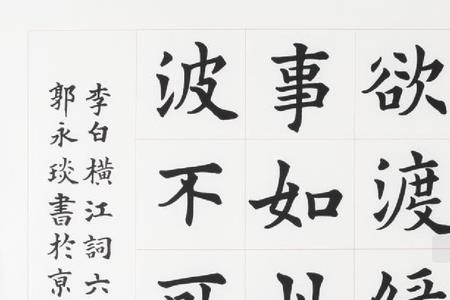 欲渡緣
事如此
波不可
李白横江詞六
郭永琰書於京